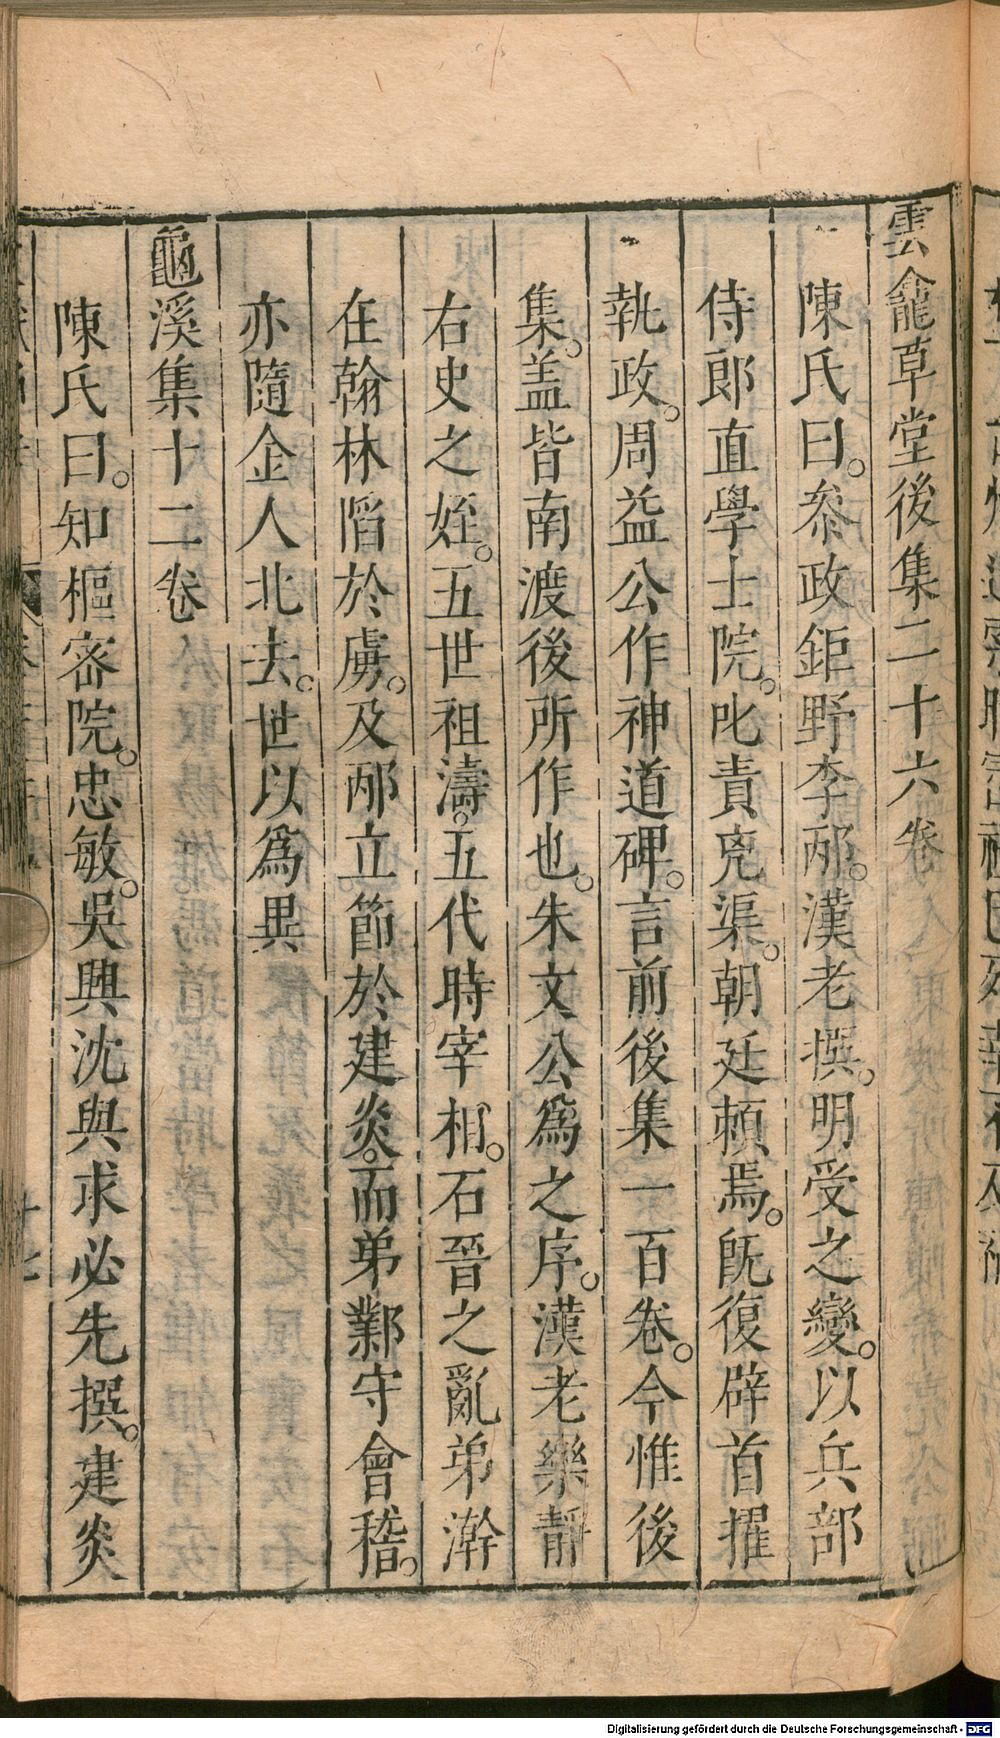 雲龕草堂後集二十六卷
陳氏曰。叅政鉅野李邴。漢老撰。明受之變。以兵部
侍郎直學士院。叱責兇渠。朝廷賴焉。旣復辟首擢
執政。周益公作神道碑。言前後集一百卷。今惟後
集。盖皆南渡後所作也。朱文公爲之序。漢老樂靜
右史之姪。五世祖濤。五代時宰相。石晉之亂弟澣
在翰林陷於虜。及邴立節於建炎。而弟鄴守會稽。
亦隨企人北去。世以爲異
龜溪集十二卷
陳氏曰。知樞密院。忠敏。吳興沈與求必先撰。建炎
Digitalisierung gefördert durch die Deutsche Forschungsgemeinschaft - DFG